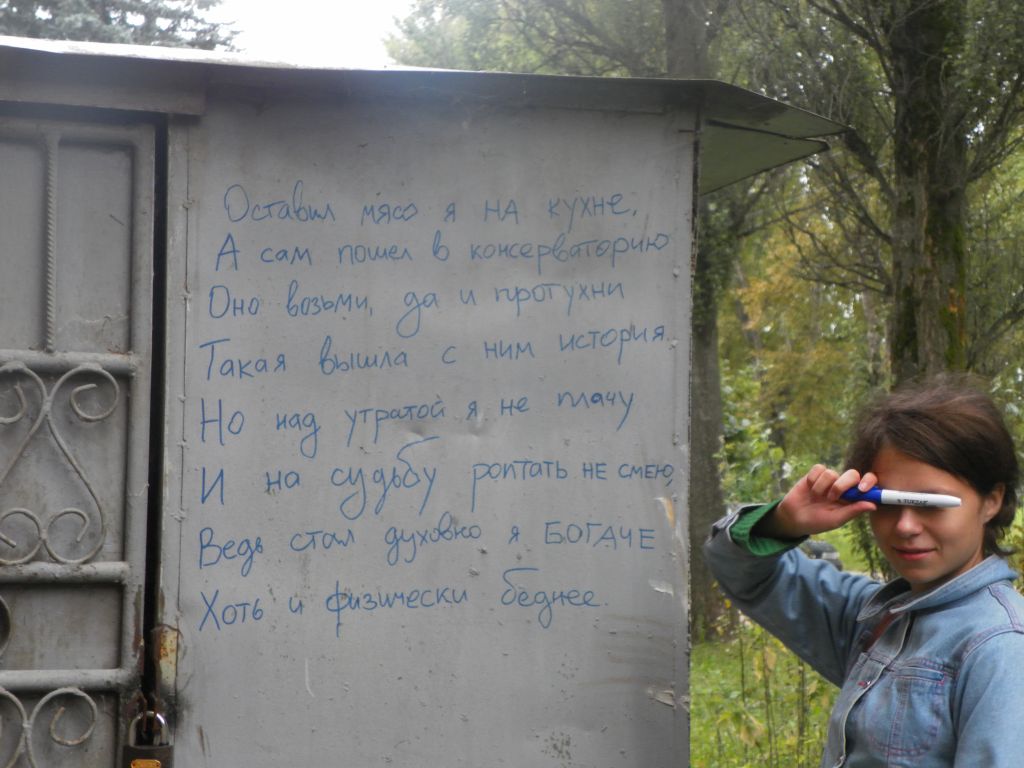 Оставил мясо я на кухне,
А сам пошел в консерваторию
Оно возьми, да и протухни
Такая вышла с ним история.
Но над утратой я не плачу
И на судьбу роптать не смею,
Ведь стал духовно я БОГАЧЕ
Хоть и физически беднее.